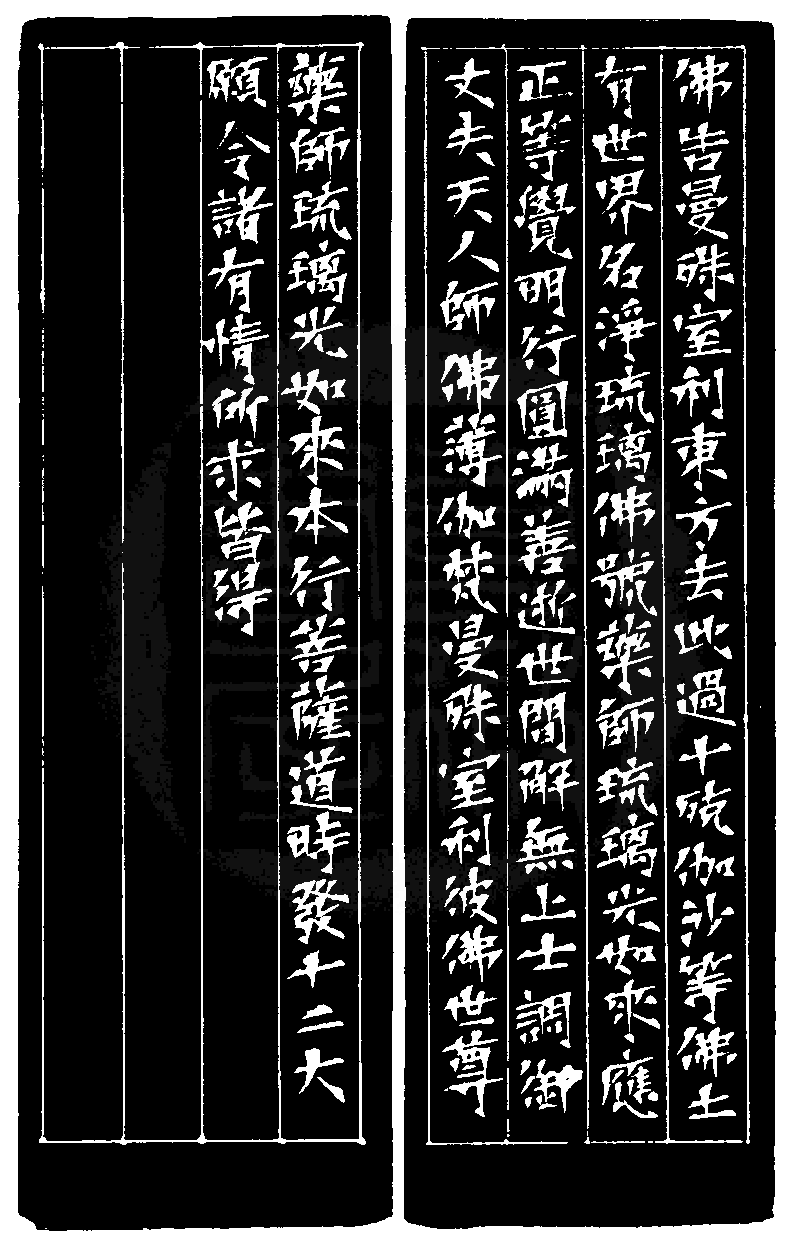 佛告曼殊室利東方去此過十殑伽沙等佛土
有世界名淨琉璃佛號藥師琉璃光如來應
正等覺明行圓滿善逝世間解無上士調御
丈夫天人師佛薄伽梵曼殊室利彼佛世尊
藥師琉璃光如來本行菩薩道時發十二大
願令諸有情所求皆得